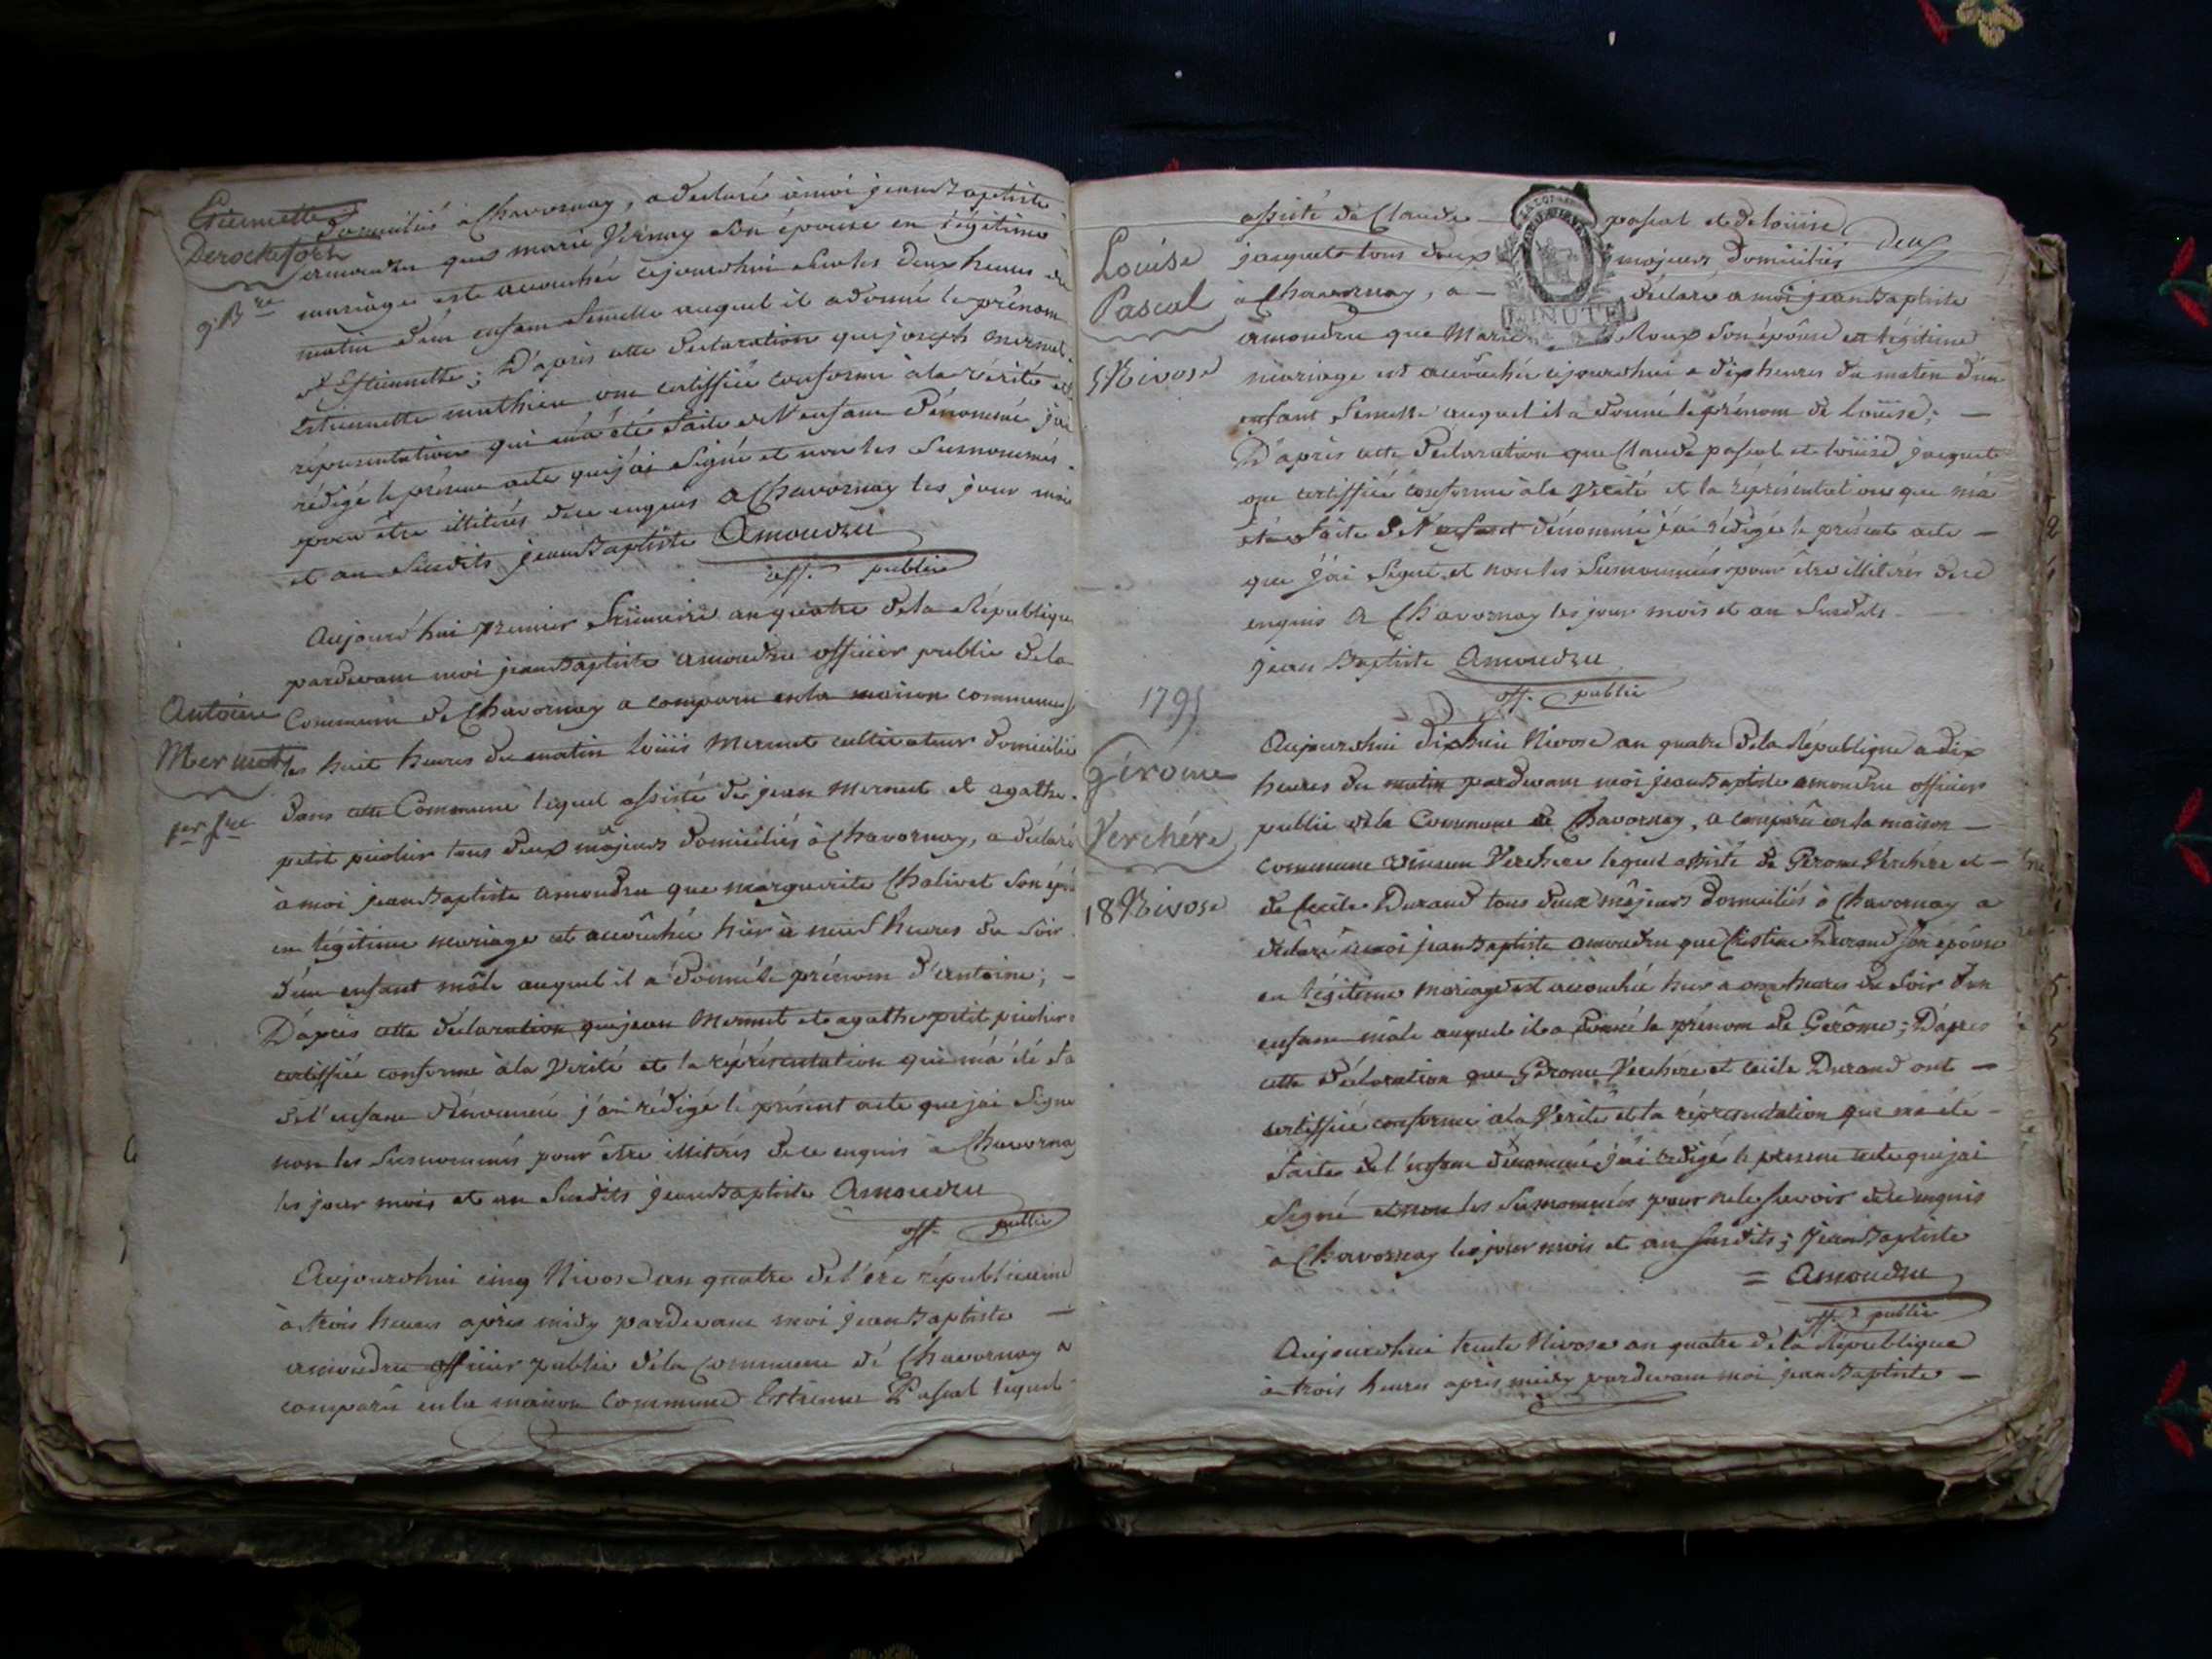 Etiennette
Derochefort
9 B.re
domiciliés à Chavornay, a déclaré à moi jean Baptiste
amoudru que marie Vernay son épouse en légitime
mariage est accouchée cejourdhui sur les deux heures du
matin d'un enfant femelle auquel il a donné le prénom
d'Estiennette; D'après cette déclaration que joseph mermet
Estiennette mathieu ont certiffiée conforme à la vérité et
réprésentation qui m'a été faite de l'enfant dénommé j'ai
rédigé le présent acte que j'ai signé et non les surnommés
pour être illiterés de ce enquis a Chavornay les jour mois
et an susdits jean Baptiste Amoudru
off. public
Antoine
Mermet
1er f.re
Aujourd'hui premier frimaire an quatre de la République
pardevant moi jean Baptiste amoudru officier public de la
Commune de Chavornay a comparu en la maison commune
les huit heures du matin Loüis Mermet cultivateur domicilié
dans cette Commune lequel assisté de jean mermet et agathe
petit tous deux majeurs domiciliés à Chavornay, a déclaré
à moi jean Baptiste amoudru que marguerite Chalivet son
en légitime mariage est accouchée hier à neuf heures du soir
d'un enfant mâle auquel il a donné le prénom d'antoine; –
D'après cette déclaration que jean Mermet et agathe petit
certiffiée conforme à la Vérité et la réprésentation qui m'a été fa
de l'enfant dénommé j'ai rédigé le présent acte que jai signé
non les surnommés pour être illiterés de ce enquis à Chavornay
les jour mois et an susdits jean Baptiste Amoudru
off. public
Aujourdhui cinq Nivose an quatre de l'ère républicaine
à trois heures après midy pardevant moi jean Baptiste –
amoudru officier public de la Commune de Chavornay a
comparu en la maison Commune Estienne Pascal lequel
Louise
Pascal
5 Nivose
assisté de Claude – pascal et de Loüise
jacquet tous deux majeurs domiciliés
à Chavornay, a – déclaré a moi jean Baptiste
amoudru que Marie Roux son épouse en légitime
mariage est accouchée cejourdhui a dix heures du matin d'un
enfant femelle auquel il a donné le prénom de Loüise; –
D'après cette déclaration que Claude pascal et Loüise jacquet
ont certiffiée conforme à la Vérité et la réprésentation que m'a
été faite de l'enfant dénommé j'ai rédigé le présent acte –
que j'ai signé, et non les surnommés pour être illiterés de ce
enquis a Chavornay les jour mois et an susdits
jean Baptiste Amoudru
off. public
1795
Gérome
Verchére
18 Nivose
Aujourdhui dixhuit Nivose an quatre de la République a dix
heures du matin pardevant moi jean Baptiste amoudru officier
public de la Commune de Chavornay, a comparû en la maison –
commune vincent Verchere lequel assisté de Gérome Verchére et –
de Cecile Durand tous deux majeurs domiciliés à Chavornay a
déclaré à moi jean Baptiste amoudru que Christine Durand son épouse
en légitime mariage est accouchée hier a onze heures du soir d'un
enfant mâle auquel il a donné le prénom de Gerôme; D'après
cette déclaration que Gérome Verchére et cecile Durand ont –
certiffiée conforme à la Vérité et la réprésentation qui m'a été –
faite de l'enfant dénommé j'ai rédigé le présent acte que jai
signé et non les surnommés pour ne le savoir de ce enquis
à Chavornay les jour mois et an susdits; jean Baptiste
= Amoudru
off. public
Aujourdhui trente Nivose an quatre de la République
à trois heures après midy pardevant moi jean Baptiste –